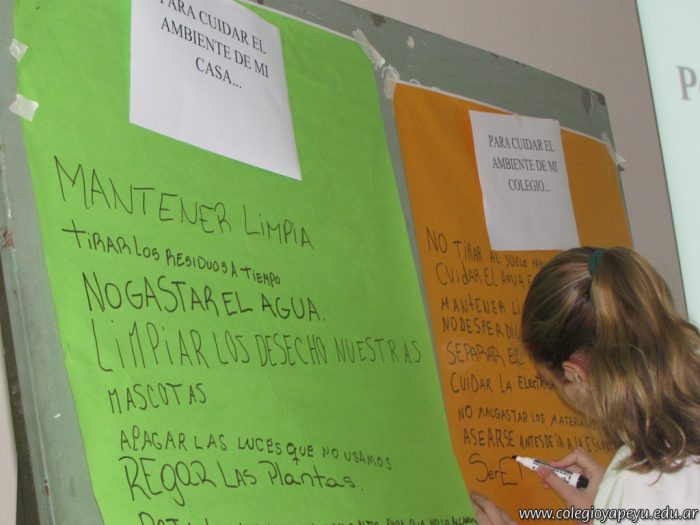 PARA CUIDAR EL
AMBIENTE DE MI
CASA...
MANTENER LIMPIA
TIRAR LOS RESIDUOS A TIEMPO
NO GASTAR EL AGUA.
LIMPIAR LOS DESECHO NUESTRAS
MASCOTAS
APAGAR LAS LUCES QUE NO USAMOS
REGAR LAS PLANTAS.
PARA CUIDAR EL
AMBIENTE DE MI
COLEGIO...
NO TIRAR AL SUELO
CUIDAR EL AGUA
MANTENER
NO DESPERDIC
SEPARAR EL
CUIDAR LA
NO MALGASTAR LOS
ASEARSE ANTES DE IR A LA
Ser
www.colegioyapeyu.edu.ar